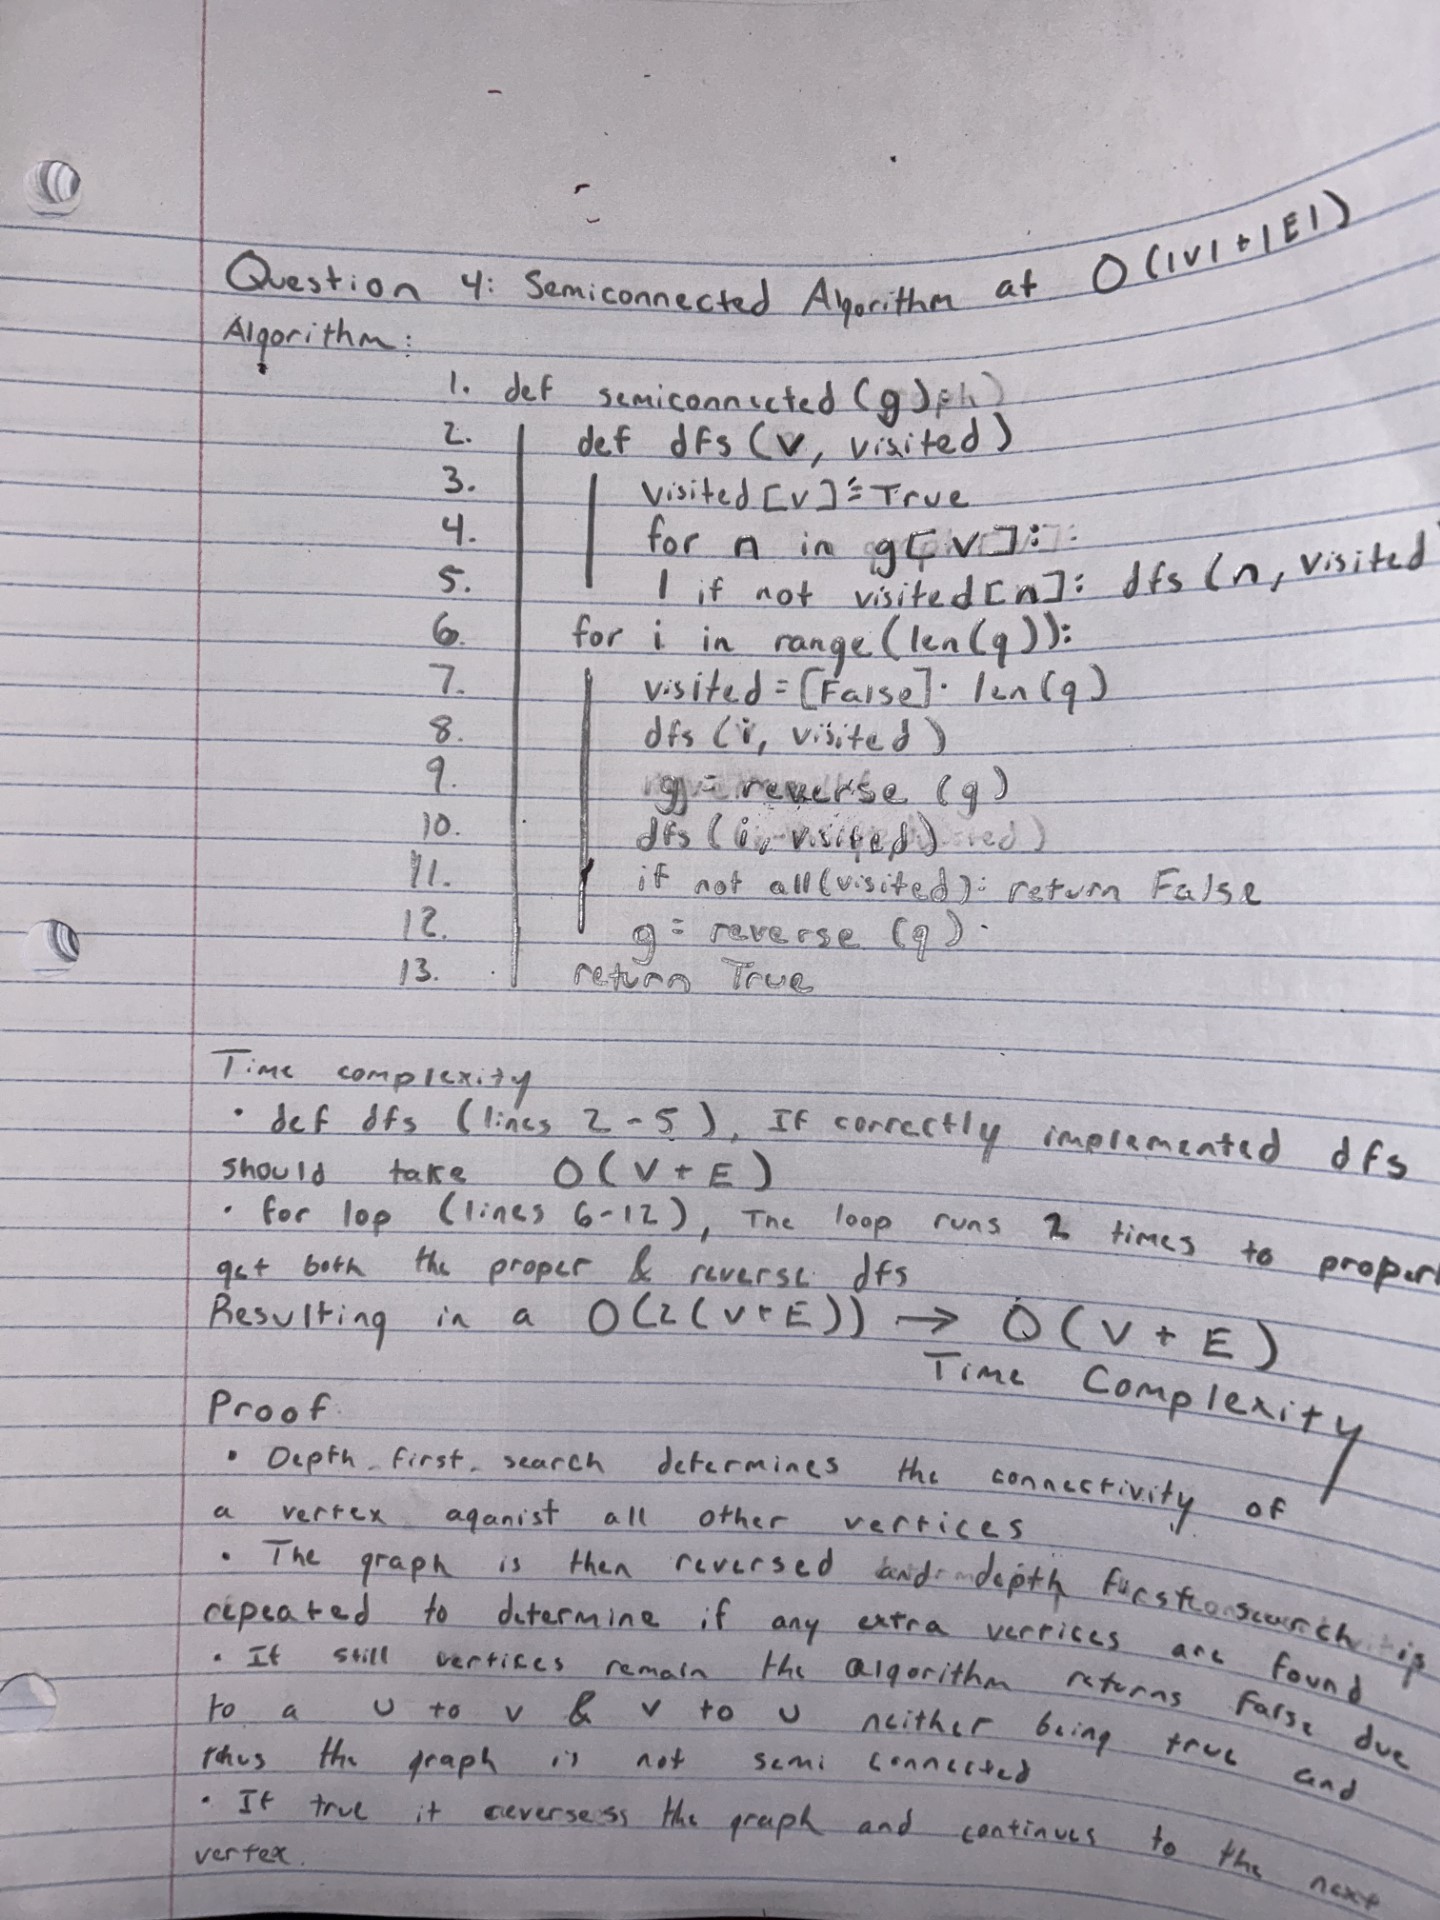 Question 4: Semiconnected Algorithm at O(|V|+|E|)
Algorithm:
1. def semiconnected(g)
2. def dfs(v, visited)
3. visited[v] = True
4. for n in g[v]:
5. if not visited[n]: dfs(n, visited
6. for i in range(len(g)):
7. visited = [False]· len(g)
8. dfs(i, visited)
9. g = reverse (g)
10. dfs(i, visited)
11. if not all(visited): return False
12. g = reverse (g)
13. return True
Time complexity
• def dfs (lines 2-5), If correctly implemented dfs
should take O(V+E)
• for lop (lines 6-12), The loop runs 2 times to proper
get both the proper & reverse dfs
Resulting in a O(2(V+E)) → O(V+E)
Time Complexity
Proof
• Depth first search determines the connectivity of
a vertex aganist all other vertices
• The graph is then reversed and depth first search is
repeated to determine if any extra vertices are found
• If still vertices remain the algorithm returns False due
to a u to v & v to u neither being true and
thus the graph is not semi connected
• If true it reversess the graph and continues to the next
vertex.